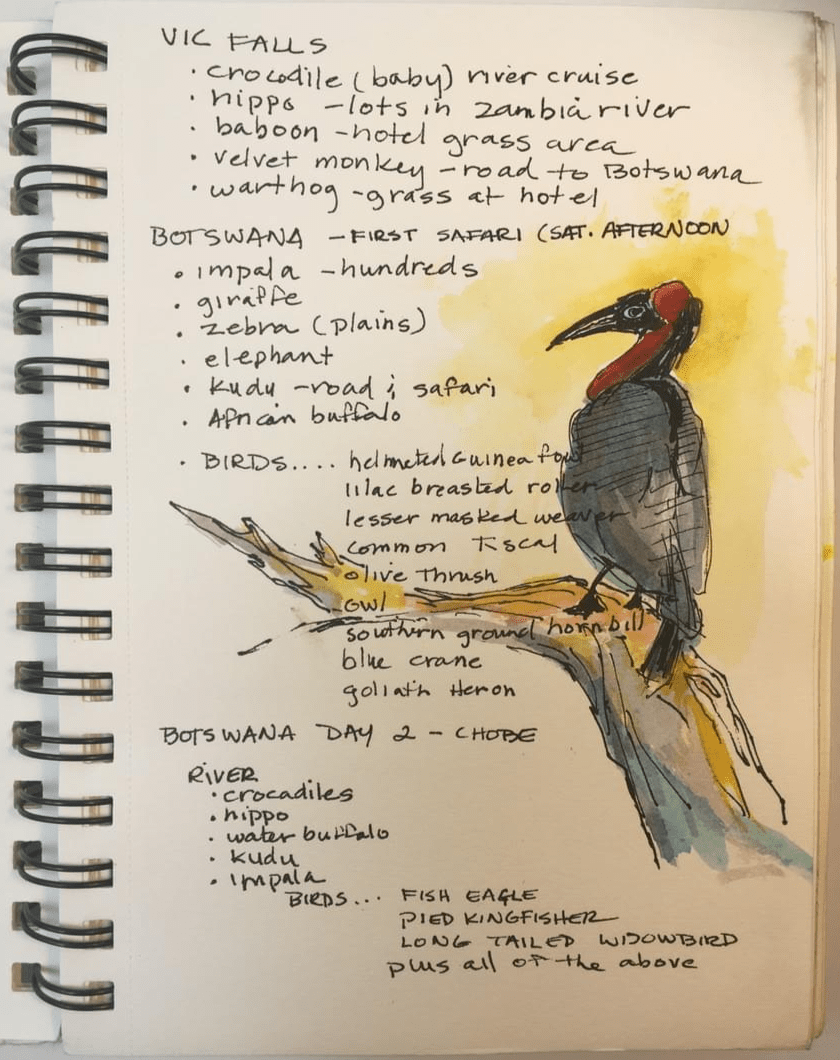 VIC FALLS
· crocodile (baby) river cruise
· hippo - lots in zambia river
· baboon - hotel grass area
· velvet monkey - road to Botswana
· warthog - grass at hotel
BOTSWANA - FIRST SAFARI (SAT. AFTERNOON
· impala - hundreds
· giraffe
· zebra (plains)
· elephant
· kudu - road & safari
· African buffalo
· BIRDS.... helmeted Guinea fowl
lilac breasted roller
lesser masked weaver
common fiscal
olive Thrush
owl
southern ground hornbill
blue crane
goliath Heron
BOTSWANA DAY 2 - CHOBE
RIVER
· crocadiles
· hippo
· water buffalo
· kudu
· impala
BIRDS... FISH EAGLE
PIED KINGFISHER
LONG TAILED WIDOWBIRD
plus all of the above